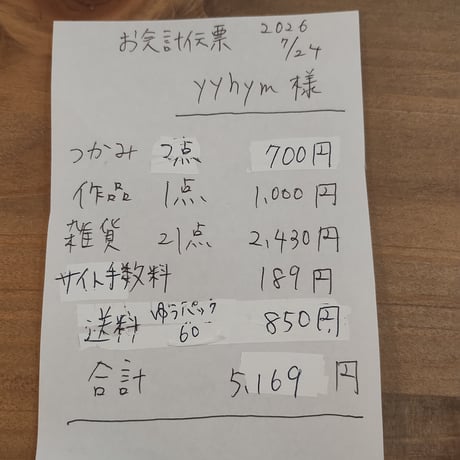 お会計伝票 2026 7/24
yyhym 様
つかみ 2点 700円
作品 1点 1,000円
雑貨 21点 2,430円
サイト手数料 189円
送料 ゆうパック60 850円
合計 5,169円